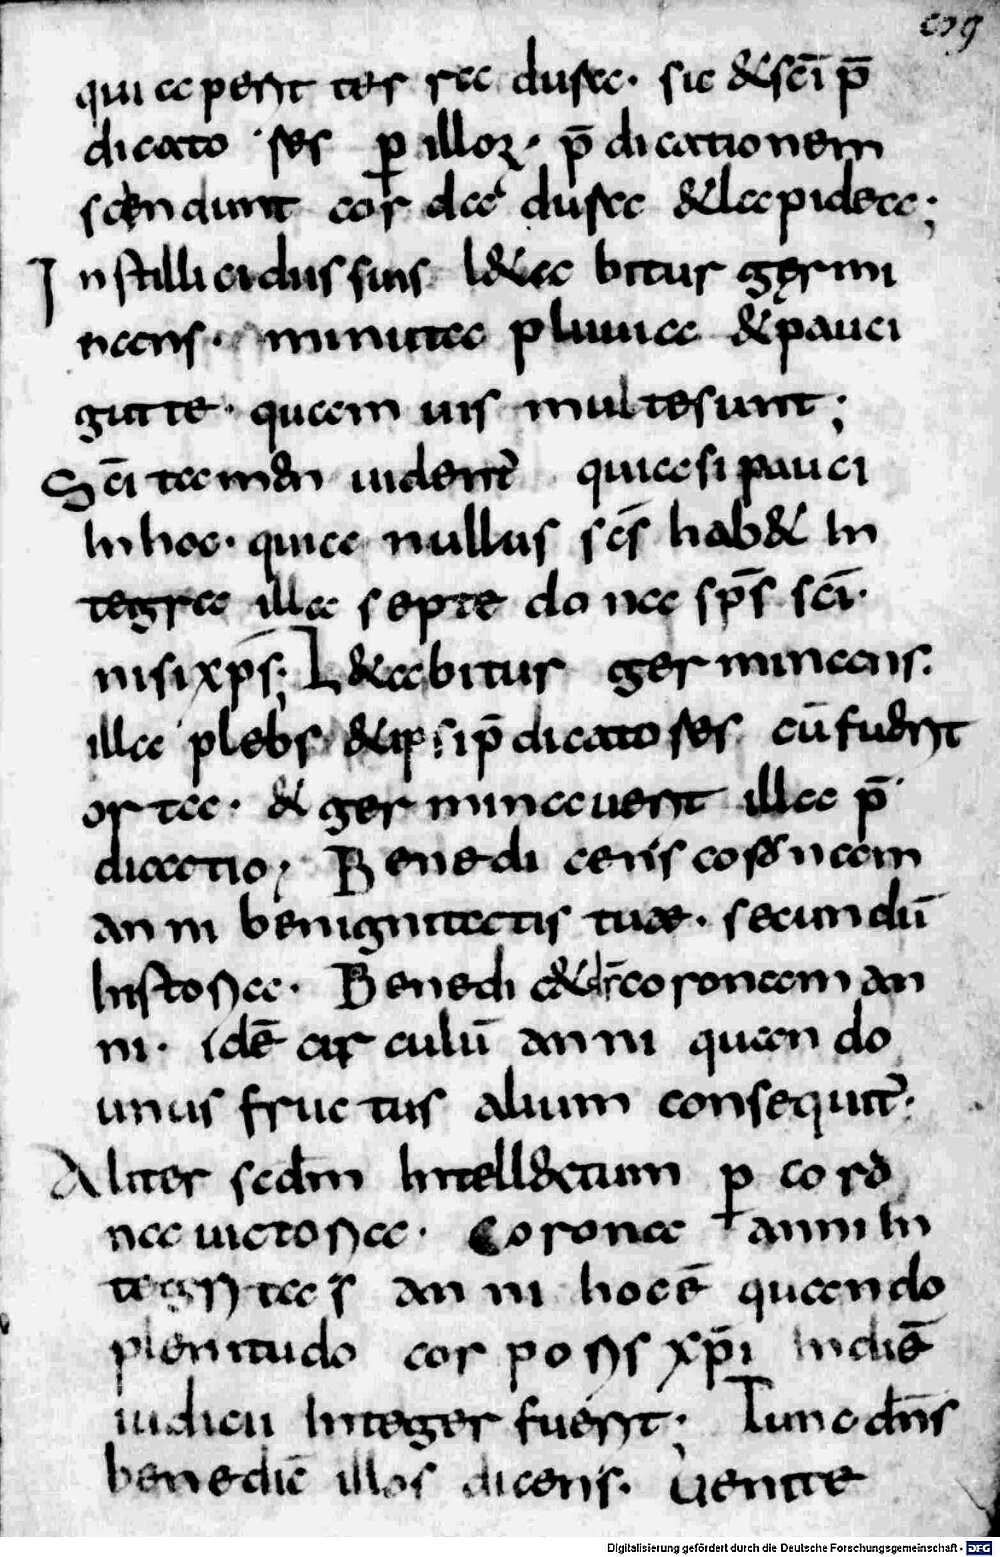 qui aperit terra dura. sic & sc̄i p̄
dicatores ꝑ illoꝝ. p̄dicationem
scendunt corda dura & lapidea;
In stillicidiis suis l&abitur germi
nans. minuta pluuia & pauci
gutte. quam uis multe sunt;
Sc̄i tam̄ uident̄ quasi pauci
In hoc. quia nullus sc̄s hab& In
tegra illa septe dona sp̄s sc̄i.
nisi xp̄s; L&abitur germinans.
illa plebs & ipsi p̄dicatores cū fuer̄
orta. & germinauerit illa p̄
dicatio; Benedicens coronam
anni benignitatis tuae. secundū
historia. Benedic& dr̄ coronam an
ni. idē circulū anni quando
unus fructus alium consequit̄.
Aliter secd̄m Intell&ctum ꝑ coro
na uictoria. Corona anni In
tegritas anni hoc ē quando
plenitudo corporis xp̄i In diē
iudicii Integer fuerit; Tunc dn̄s
benedic̄ illos dicens. Uenite